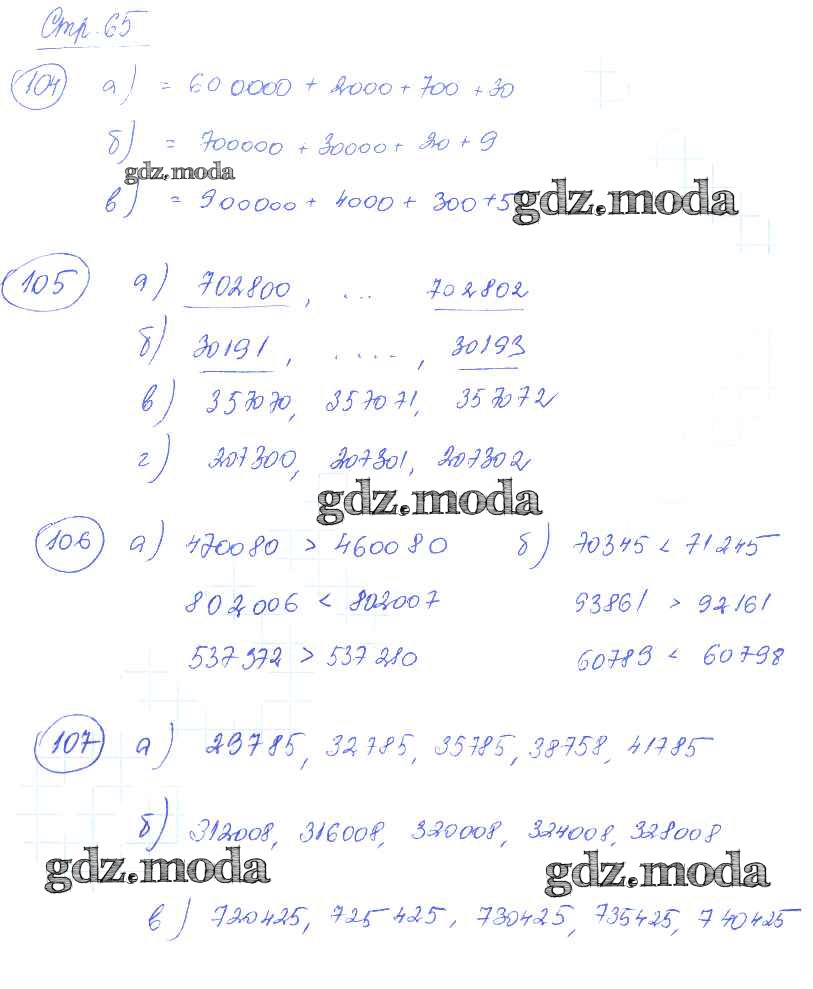 Стр. 65
104 а) = 600000 + 2000 + 700 + 30
б) = 700000 + 30000 + 20 + 9
gdz.moda
в) = 900000 + 4000 + 300 + 5
gdz.moda
105 а) 702800, ... 702802
б) 30191, ....., 30193
в) 357070, 357071, 357072
г) 207300, 207301, 207302
gdz.moda
106 а) 470080 > 460080 б) 70345 < 71245
802006 < 802007 93861 > 92161
537372 > 537280 60789 < 60798
107 а) 29785, 32785, 35785, 38758, 41785
б) 312008, 316008, 320008, 324008, 328008
gdz.moda gdz.moda
в) 720425, 725425, 730425, 735425, 740425